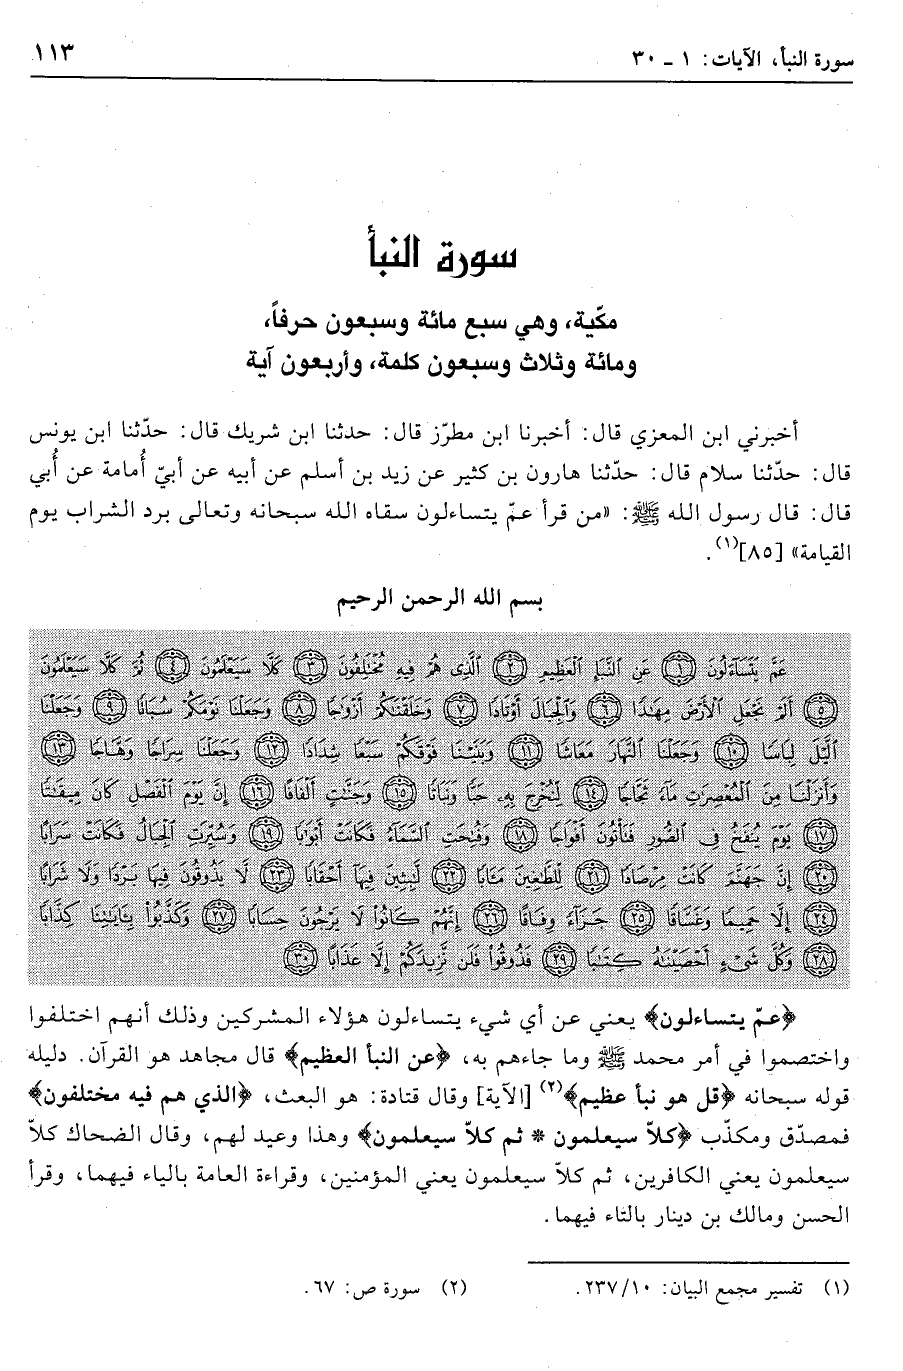 سورة النبأ، الآيات: ١ ـ ٣٠
١١٣
سورة النبأ
مكّية، وهي سبع مائة وسبعون حرفاً،
ومائة وثلاث وسبعون كلمة، وأربعون آية
أخبرني ابن المعزي قال: أخبرنا ابن مطرّز قال: حدثنا ابن شريك قال: حدّثنا ابن يونس
قال: حدّثنا سلام قال: حدّثنا هارون بن كثير عن زيد بن أسلم عن أبيه عن أبيّ أُمامة عن أُبي
قال: قال رسول الله ﷺ: «من قرأ عمّ يتساءلون سقاه الله سبحانه وتعالى برد الشراب يوم
القيامة» [٨٥](١).
بسم الله الرحمن الرحيم
عَمَّ يَتَسَآءَلُونَ ﴿١﴾ عَنِ ٱلنَّبَإِ ٱلْعَظِيمِ ﴿٢﴾ ٱلَّذِى هُمْ فِيهِ مُخْتَلِفُونَ ﴿٣﴾ كَلَّا سَيَعْلَمُونَ ﴿٤﴾ ثُمَّ كَلَّا سَيَعْلَمُونَ
﴿٥﴾ أَلَمْ نَجْعَلِ ٱلْأَرْضَ مِهَٰدًا ﴿٦﴾ وَٱلْجِبَالَ أَوْتَادًا ﴿٧﴾ وَخَلَقْنَٰكُمْ أَزْوَٰجًا ﴿٨﴾ وَجَعَلْنَا نَوْمَكُمْ سُبَاتًا ﴿٩﴾ وَجَعَلْنَا
ٱلَّيْلَ لِبَاسًا ﴿١٠﴾ وَجَعَلْنَا ٱلنَّهَارَ مَعَاشًا ﴿١١﴾ وَبَنَيْنَا فَوْقَكُمْ سَبْعًا شِدَادًا ﴿١٢﴾ وَجَعَلْنَا سِرَاجًا وَهَّاجًا ﴿١٣﴾
وَأَنزَلْنَا مِنَ ٱلْمُعْصِرَٰتِ مَآءً ثَجَّاجًا ﴿١٤﴾ لِّنُخْرِجَ بِهِۦ حَبًّا وَنَبَاتًا ﴿١٥﴾ وَجَنَّٰتٍ أَلْفَافًا ﴿١٦﴾ إِنَّ يَوْمَ ٱلْفَصْلِ كَانَ مِيقَٰتًا
﴿١٧﴾ يَوْمَ يُنفَخُ فِى ٱلصُّورِ فَتَأْتُونَ أَفْوَاجًا ﴿١٨﴾ وَفُتِحَتِ ٱلسَّمَآءُ فَكَانَتْ أَبْوَٰبًا ﴿١٩﴾ وَسُيِّرَتِ ٱلْجِبَالُ فَكَانَتْ سَرَابًا
﴿٢٠﴾ إِنَّ جَهَنَّمَ كَانَتْ مِرْصَادًا ﴿٢١﴾ لِّلطَّٰغِينَ مَـَٔابًا ﴿٢٢﴾ لَّٰبِثِينَ فِيهَآ أَحْقَابًا ﴿٢٣﴾ لَّا يَذُوقُونَ فِيهَا بَرْدًا وَلَا شَرَابًا
﴿٢٤﴾ إِلَّا حَمِيمًا وَغَسَّاقًا ﴿٢٥﴾ جَزَآءً وِفَاقًا ﴿٢٦﴾ إِنَّهُمْ كَانُوا۟ لَا يَرْجُونَ حِسَابًا ﴿٢٧﴾ وَكَذَّبُوا۟ بِـَٔايَٰتِنَا كِذَّابًا
﴿٢٨﴾ وَكُلَّ شَىْءٍ أَحْصَيْنَٰهُ كِتَٰبًا ﴿٢٩﴾ فَذُوقُوا۟ فَلَن نَّزِيدَكُمْ إِلَّا عَذَابًا ﴿٣٠﴾
﴿عمّ يتساءلون﴾ يعني عن أي شيء يتساءلون هؤلاء المشركين وذلك أنهم اختلفوا
واختصموا في أمر محمد ﷺ وما جاءهم به، ﴿عن النبأ العظيم﴾ قال مجاهد هو القرآن. دليله
قوله سبحانه ﴿قل هو نبأ عظيم﴾(٢) [الآية] وقال قتادة: هو البعث، ﴿الذي هم فيه مختلفون﴾
فمصدّق ومكذّب ﴿كلاّ سيعلمون * ثم كلاّ سيعلمون﴾ وهذا وعيد لهم، وقال الضحاك كلاّ
سيعلمون يعني الكافرين، ثم كلاّ سيعلمون يعني المؤمنين، وقراءة العامة بالياء فيهما، وقرأ
الحسن ومالك بن دينار بالتاء فيهما.
(١) تفسير مجمع البيان: ١٠/ ٢٣٧.
(٢) سورة ص: ٦٧.